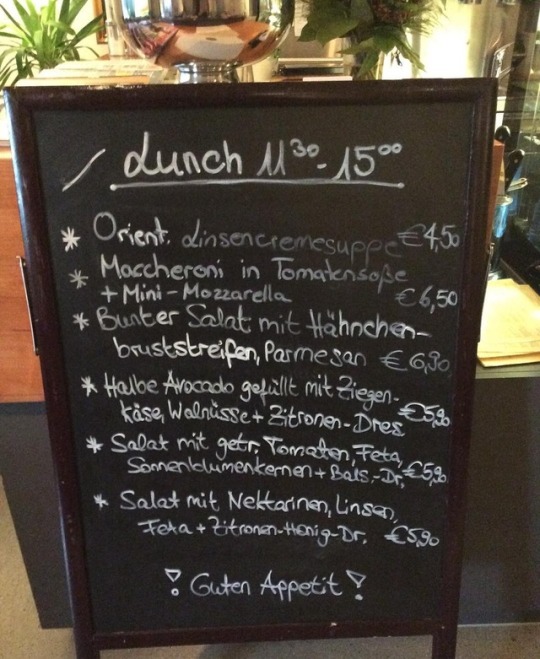 Lunch 11³⁰-15⁰⁰
* Orient. Linsencremesuppe €4,50
* Maccheroni in Tomatensoße
+ Mini-Mozzarella €6,50
* Bunter Salat mit Hähnchen-
bruststreifen, Parmesan €6,90
* Halbe Avocado gefüllt mit Ziegen-
käse, Walnüsse + Zitronen-Dres €5,90
* Salat mit getr. Tomaten, Feta,
Sonnenblumenkernen + Bals.-Dr. €5,90
* Salat mit Nektarinen, Linsen,
Feta + Zitronen-Honig-Dr. €5,90
! Guten Appetit !